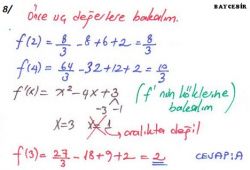 8/ Önce uç değerlere bakalım. BAYCEBİR
f(2) = 8/3 - 8 + 6 + 2 = 8/3
f(4) = 64/3 - 32 + 12 + 2 = 10/3
f'(x) = x² - 4x + 3 (f' nün köklerine
-3 -1 bakalım)
x = 3 x = 1 → aralıkta değil
f(3) = 27/3 - 18 + 9 + 2 = 2 CEVAP: A